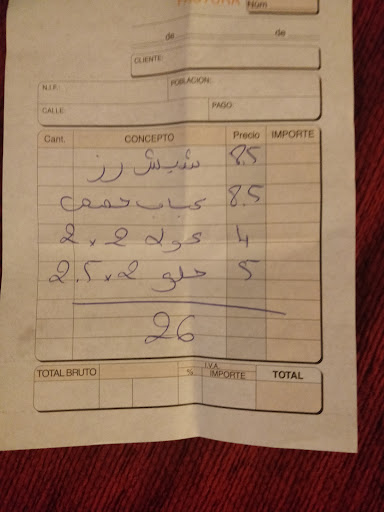 FACTURA
Núm
de de
CLIENTE:
N.I.F.: POBLACION:
CALLE: PAGO:
Cant. CONCEPTO Precio IMPORTE
شيش رز 8.5
كباب حمص 8.5
كولا 2 x 2 4
حلو 2 x 2.5 5
26
TOTAL BRUTO % I.V.A. IMPORTE TOTAL